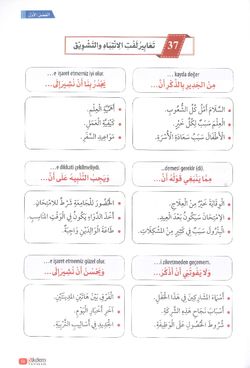 الفصل الأول
37 تعابير لفت الانتباه والتشويق
kayda değer...
من الجدير بالذكر أنّ...
السلام أمل كل الشعوب.
العلم سبب لكل خير.
الأطفال سبب سعادة الأسرة.
...e işaret etmemiz iyi olur.
يجدر بنا أن نشير إلى...
أهمية العلم.
كيفية العمل.
مواعيد السفر.
...demesi gerekir (di).
مما ينبغي قوله أنّ...
الوقاية خير من العلاج.
الامتحان سيكون بعد العيد.
البترول سبب في كثير من المشكلات.
...e dikkati çekilmeliydi.
ويجب التنبيه على أنّ...
الحضور للجامعة شرط للامتحان.
أخذ الدواء يكون في الوقت المناسب.
طاعة الوالدين واجبة.
...i zikretmeden geçemem.
ولا يفوتني أن أذكر...
أسماء المشاركين في هذا الحفل.
أسباب نجاح هذه الشركة.
شروط الحصول على الوظيفة.
...e işaret etmemiz güzel olur.
ويحسن أن نشير إلى...
الفرق بين هاتين المدينتين.
آخر أخبار اليوم.
الجديد في أساليب التربية.
akdem